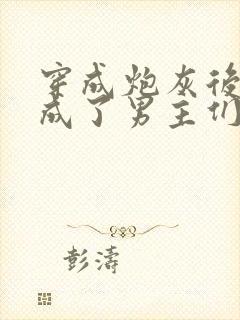 穿成炮灰後
成了男主们
彭濤